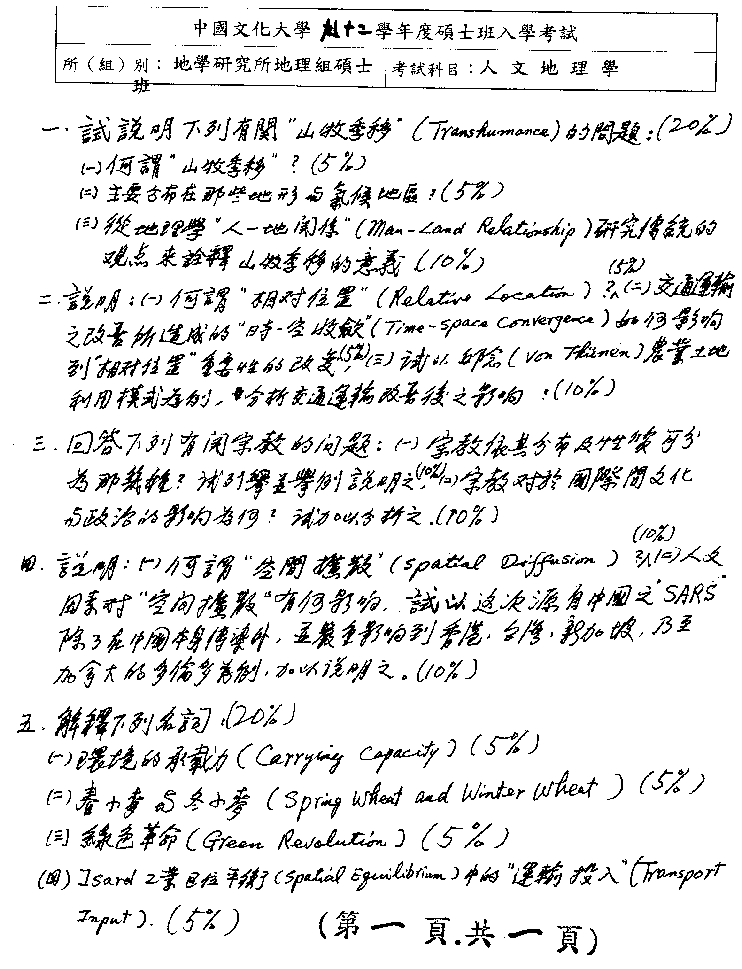 中國文化大學 九十二學年度碩士班入學考試
所（組）別：地學研究所地理組碩士班 考試科目：人文地理學
一、試說明下列有關"山牧季移"(Transhumance)的問題：(20%)
(一)何謂"山牧季移"？(5%)
(二)主要分布在那些地形与氣候地區？(5%)
(三)從地理學"人－地関係"(Man-Land Relationship)研究傳統的
观点來詮釋山牧季移的意義(10%)
二、說明：(一)何謂"相对位置"(Relative Location)？(5%)(二)交通運輸
之改善所造成的"時－空收斂"(Time-space convergence)如何影响
到"相对位置"重要性的改变(5%),(三)試以邱念(Von Thünen)農業土地
利用模式為例,分析交通運輸改善後之影响：(10%)
三、回答下列有関宗教的问题：(一)宗教依其分布及性質可分
為那幾種？試列舉並舉例說明之(10%),(二)宗教对於國際間文化
与政治的影响為何？試加以分析之.(10%)
四、說明：(一)何謂"空間擴散"(Spatial Diffusion)？(10%)(二)人文
因素对"空间擴散"有何影响,試以这次源自中國之"SARS"
除了在中國本身傳染外,並嚴重影响到香港、台灣、新加坡,乃至
加拿大的多倫多為例,加以說明之。(10%)
五、解釋下列名詞.(20%)
(一)環境的承載力(Carrying Capacity)(5%)
(二)春小麥与冬小麥(Spring Wheat and Winter Wheat)(5%)
(三)綠色革命(Green Revolution)(5%)
(四)Isard工業區位平衡(Spatial Equilibrium)中的"運輸投入"(Transport
Input).(5%)
(第一頁.共一頁)